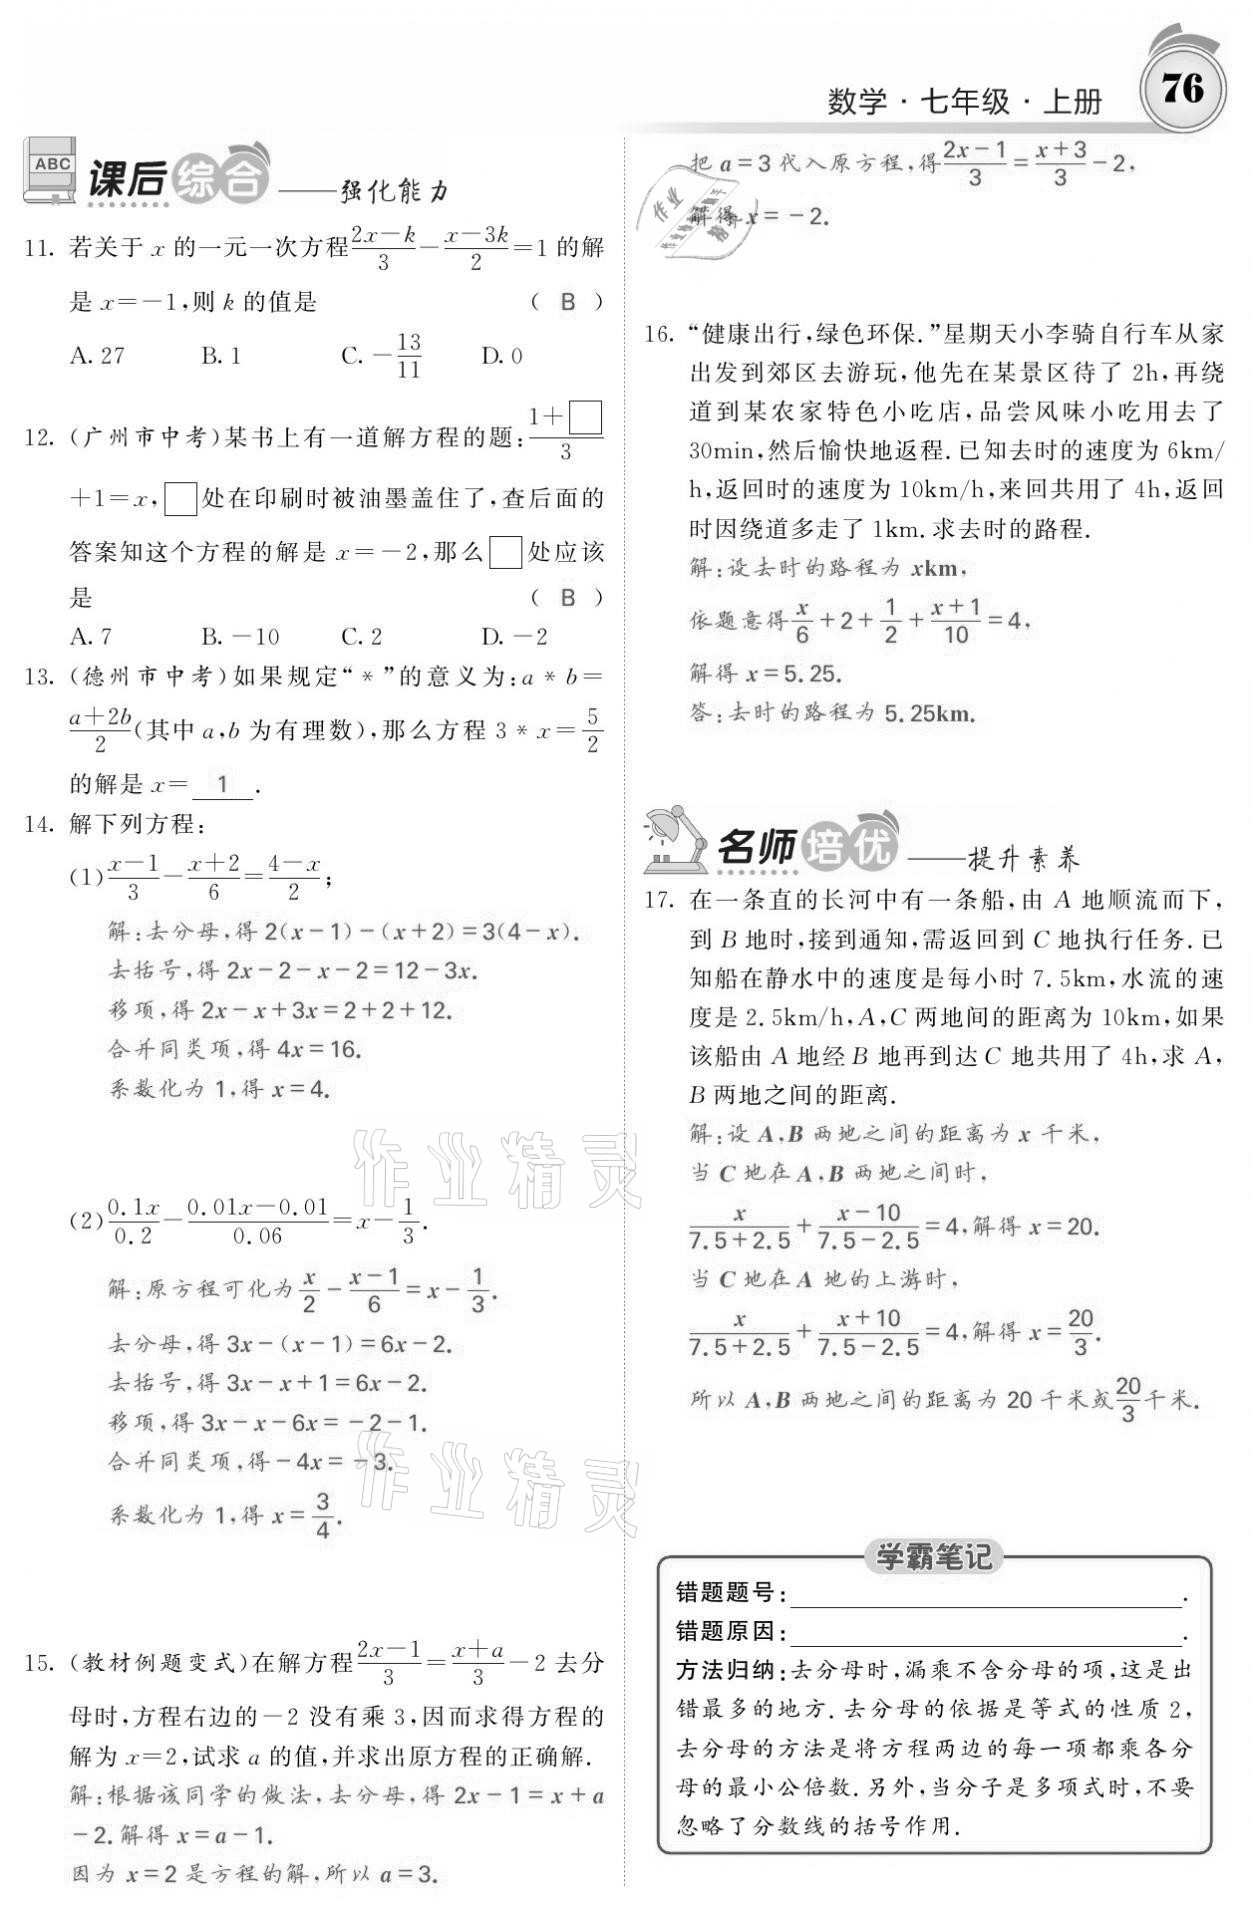 数学·七年级·上册 76
ABC 课后综合——强化能力
11. 若关于 x 的一元一次方程(2x-k)/3-(x-3k)/2=1 的解
是 x=-1,则 k 的值是 ( B )
A. 27 B. 1 C. -13/11 D. 0
12. (广州市中考)某书上有一道解方程的题:(1+□)/3
+1=x,□处在印刷时被油墨盖住了,查后面的
答案知这个方程的解是 x=-2,那么□处应该
是 ( B )
A. 7 B. -10 C. 2 D. -2
13. (德州市中考)如果规定“*”的意义为:a*b=
(a+2b)/2(其中 a,b 为有理数),那么方程 3*x=5/2
的解是 x= 1 .
14. 解下列方程:
(1)(x-1)/3-(x+2)/6=(4-x)/2;
解:去分母,得 2(x-1)-(x+2)=3(4-x).
去括号,得 2x-2-x-2=12-3x.
移项,得 2x-x+3x=2+2+12.
合并同类项,得 4x=16.
系数化为 1,得 x=4.
(2)0.1x/0.2-(0.01x-0.01)/0.06=x-1/3.
解:原方程可化为x/2-(x-1)/6=x-1/3.
去分母,得 3x-(x-1)=6x-2.
去括号,得 3x-x+1=6x-2.
移项,得 3x-x-6x=-2-1.
合并同类项,得-4x=-3.
系数化为 1,得 x=3/4.
15. (教材例题变式)在解方程(2x-1)/3=(x+a)/3-2 去分
母时,方程右边的-2 没有乘 3,因而求得方程的
解为 x=2,试求 a 的值,并求出原方程的正确解.
解:根据该同学的做法,去分母,得 2x-1=x+a
-2.解得 x=a-1.
因为 x=2 是方程的解,所以 a=3.
把 a=3 代入原方程,得(2x-1)/3=(x+3)/3-2,
解得 x=-2.
16. “健康出行,绿色环保.”星期天小李骑自行车从家
出发到郊区去游玩,他先在某景区待了 2h,再绕
道到某农家特色小吃店,品尝风味小吃用去了
30min,然后愉快地返程.已知去时的速度为 6km/
h,返回时的速度为 10km/h,来回共用了 4h,返回
时因绕道多走了 1km.求去时的路程.
解:设去时的路程为 xkm,
依题意得x/6+2+1/2+(x+1)/10=4,
解得 x=5.25.
答:去时的路程为 5.25km.
名师培优——提升素养
17. 在一条直的长河中有一条船,由 A 地顺流而下,
到 B 地时,接到通知,需返回到 C 地执行任务.已
知船在静水中的速度是每小时 7.5km,水流的速
度是 2.5km/h,A,C 两地间的距离为 10km,如果
该船由 A 地经 B 地再到达 C 地共用了 4h,求 A,
B 两地之间的距离.
解:设 A,B 两地之间的距离为 x 千米,
当 C 地在 A,B 两地之间时,
x/(7.5+2.5)+(x-10)/(7.5-2.5)=4,解得 x=20.
当 C 地在 A 地的上游时,
x/(7.5+2.5)+(x+10)/(7.5-2.5)=4,解得 x=20/3.
所以 A,B 两地之间的距离为 20 千米或20/3千米.
学霸笔记
错题题号: .
错题原因: .
方法归纳:去分母时,漏乘不含分母的项,这是出
错最多的地方.去分母的依据是等式的性质 2,
去分母的方法是将方程两边的每一项都乘各分
母的最小公倍数.另外,当分子是多项式时,不要
忽略了分数线的括号作用.
作业精灵
作业精灵
作业